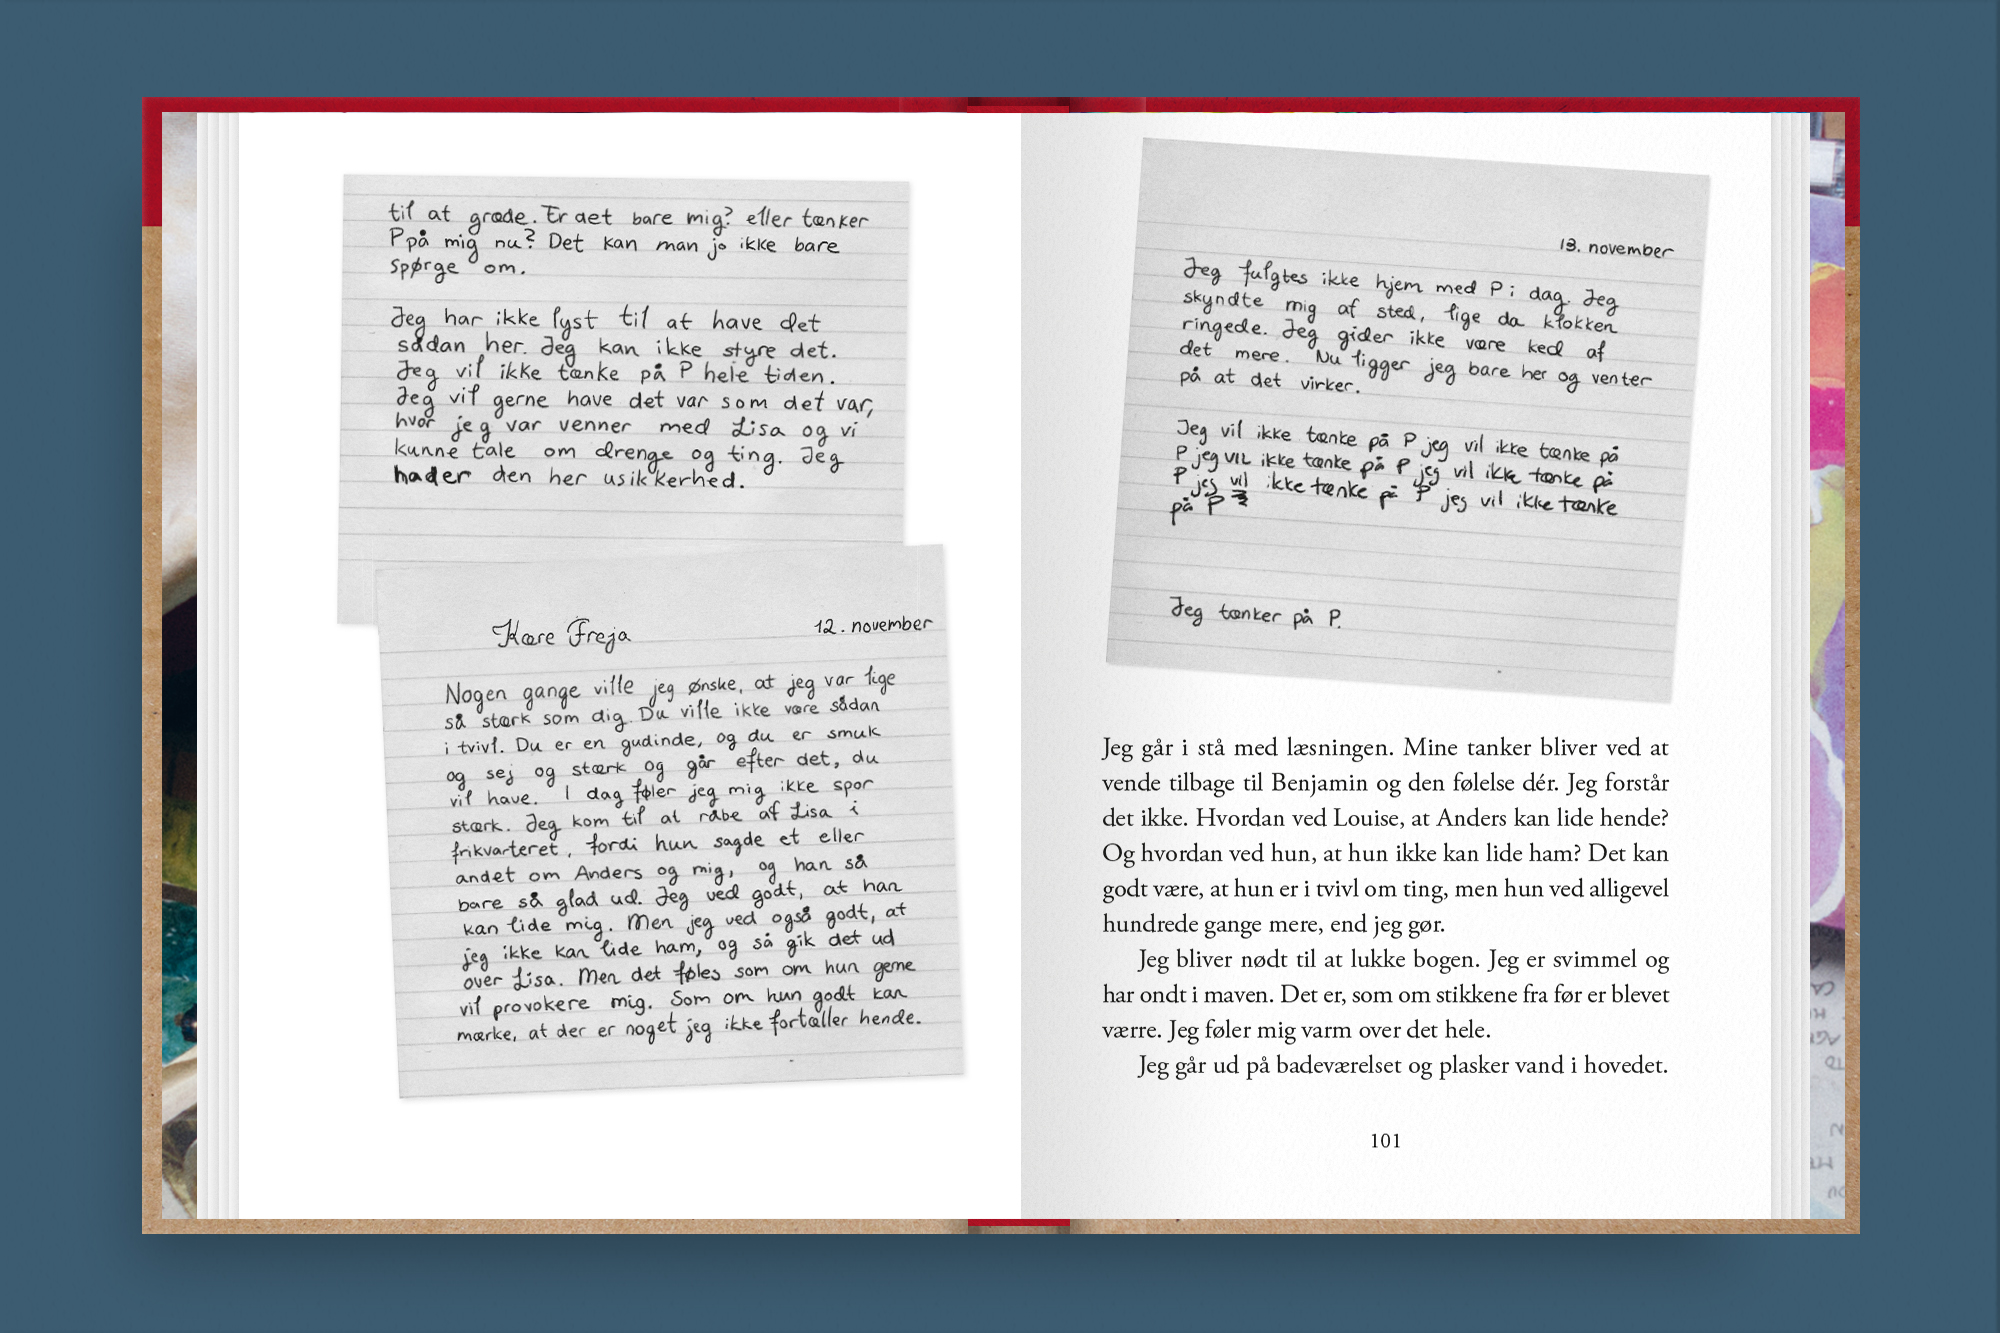 til at græde. Er det bare mig? eller tænker
P på mig nu? Det kan man jo ikke bare
spørge om.
Jeg har ikke lyst til at have det
sådan her. Jeg kan ikke styre det.
Jeg vil ikke tænke på P hele tiden.
Jeg vil gerne have det var som det var,
hvor jeg var venner med Lisa og vi
kunne tale om drenge og ting. Jeg
hader den her usikkerhed.
Kære Freja
12. november
Nogen gange ville jeg ønske, at jeg var lige
så stærk som dig. Du ville ikke være sådan
i tvivl. Du er en gudinde, og du er smuk
og sej og stærk og går efter det, du
vil have. I dag føler jeg mig ikke spor
stærk. Jeg kom til at råbe af Lisa i
frikvarteret, fordi hun sagde et eller
andet om Anders og mig, og han så
bare så glad ud. Jeg ved godt, at han
kan lide mig. Men jeg ved også godt, at
jeg ikke kan lide ham, og så gik det ud
over Lisa. Men det føles som om hun gerne
vil provokere mig. Som om hun godt kan
mærke, at der er noget jeg ikke fortæller hende.
13. november
Jeg fulgtes ikke hjem med P i dag. Jeg
skyndte mig af sted, lige da klokken
ringede. Jeg gider ikke være ked af
det mere. Nu ligger jeg bare her og venter
på at det virker.
Jeg vil ikke tænke på P jeg vil ikke tænke på
P jeg vil ikke tænke på P jeg vil ikke tænke på
P jeg vil ikke tænke på P jeg vil ikke tænke
på P
Jeg tænker på P.
Jeg går i stå med læsningen. Mine tanker bliver ved at
vende tilbage til Benjamin og den følelse dér. Jeg forstår
det ikke. Hvordan ved Louise, at Anders kan lide hende?
Og hvordan ved hun, at hun ikke kan lide ham? Det kan
godt være, at hun er i tvivl om ting, men hun ved alligevel
hundrede gange mere, end jeg gør.
Jeg bliver nødt til at lukke bogen. Jeg er svimmel og
har ondt i maven. Det er, som om stikkene fra før er blevet
værre. Jeg føler mig varm over det hele.
Jeg går ud på badeværelset og plasker vand i hovedet.
101